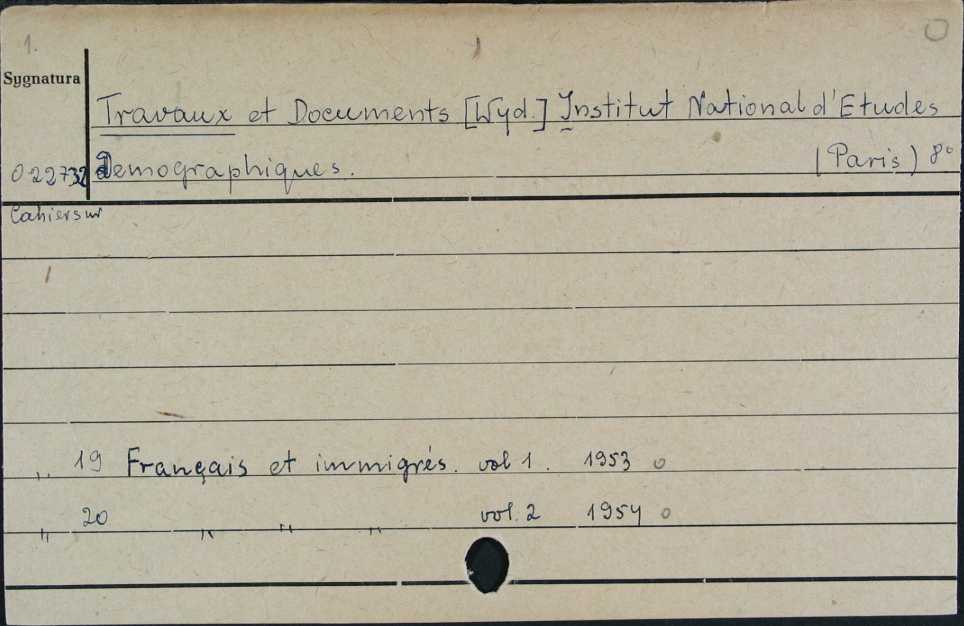 1.
Sygnatura
Travaux et Documents [Wyd.] Institut National d'Etudes
022732 Demographiques. (Paris) 8°
Cahiers nr
„ 19 Français et immigrés. vol 1. 1953 o
„ 20 „ „ „ vol. 2 1954 o